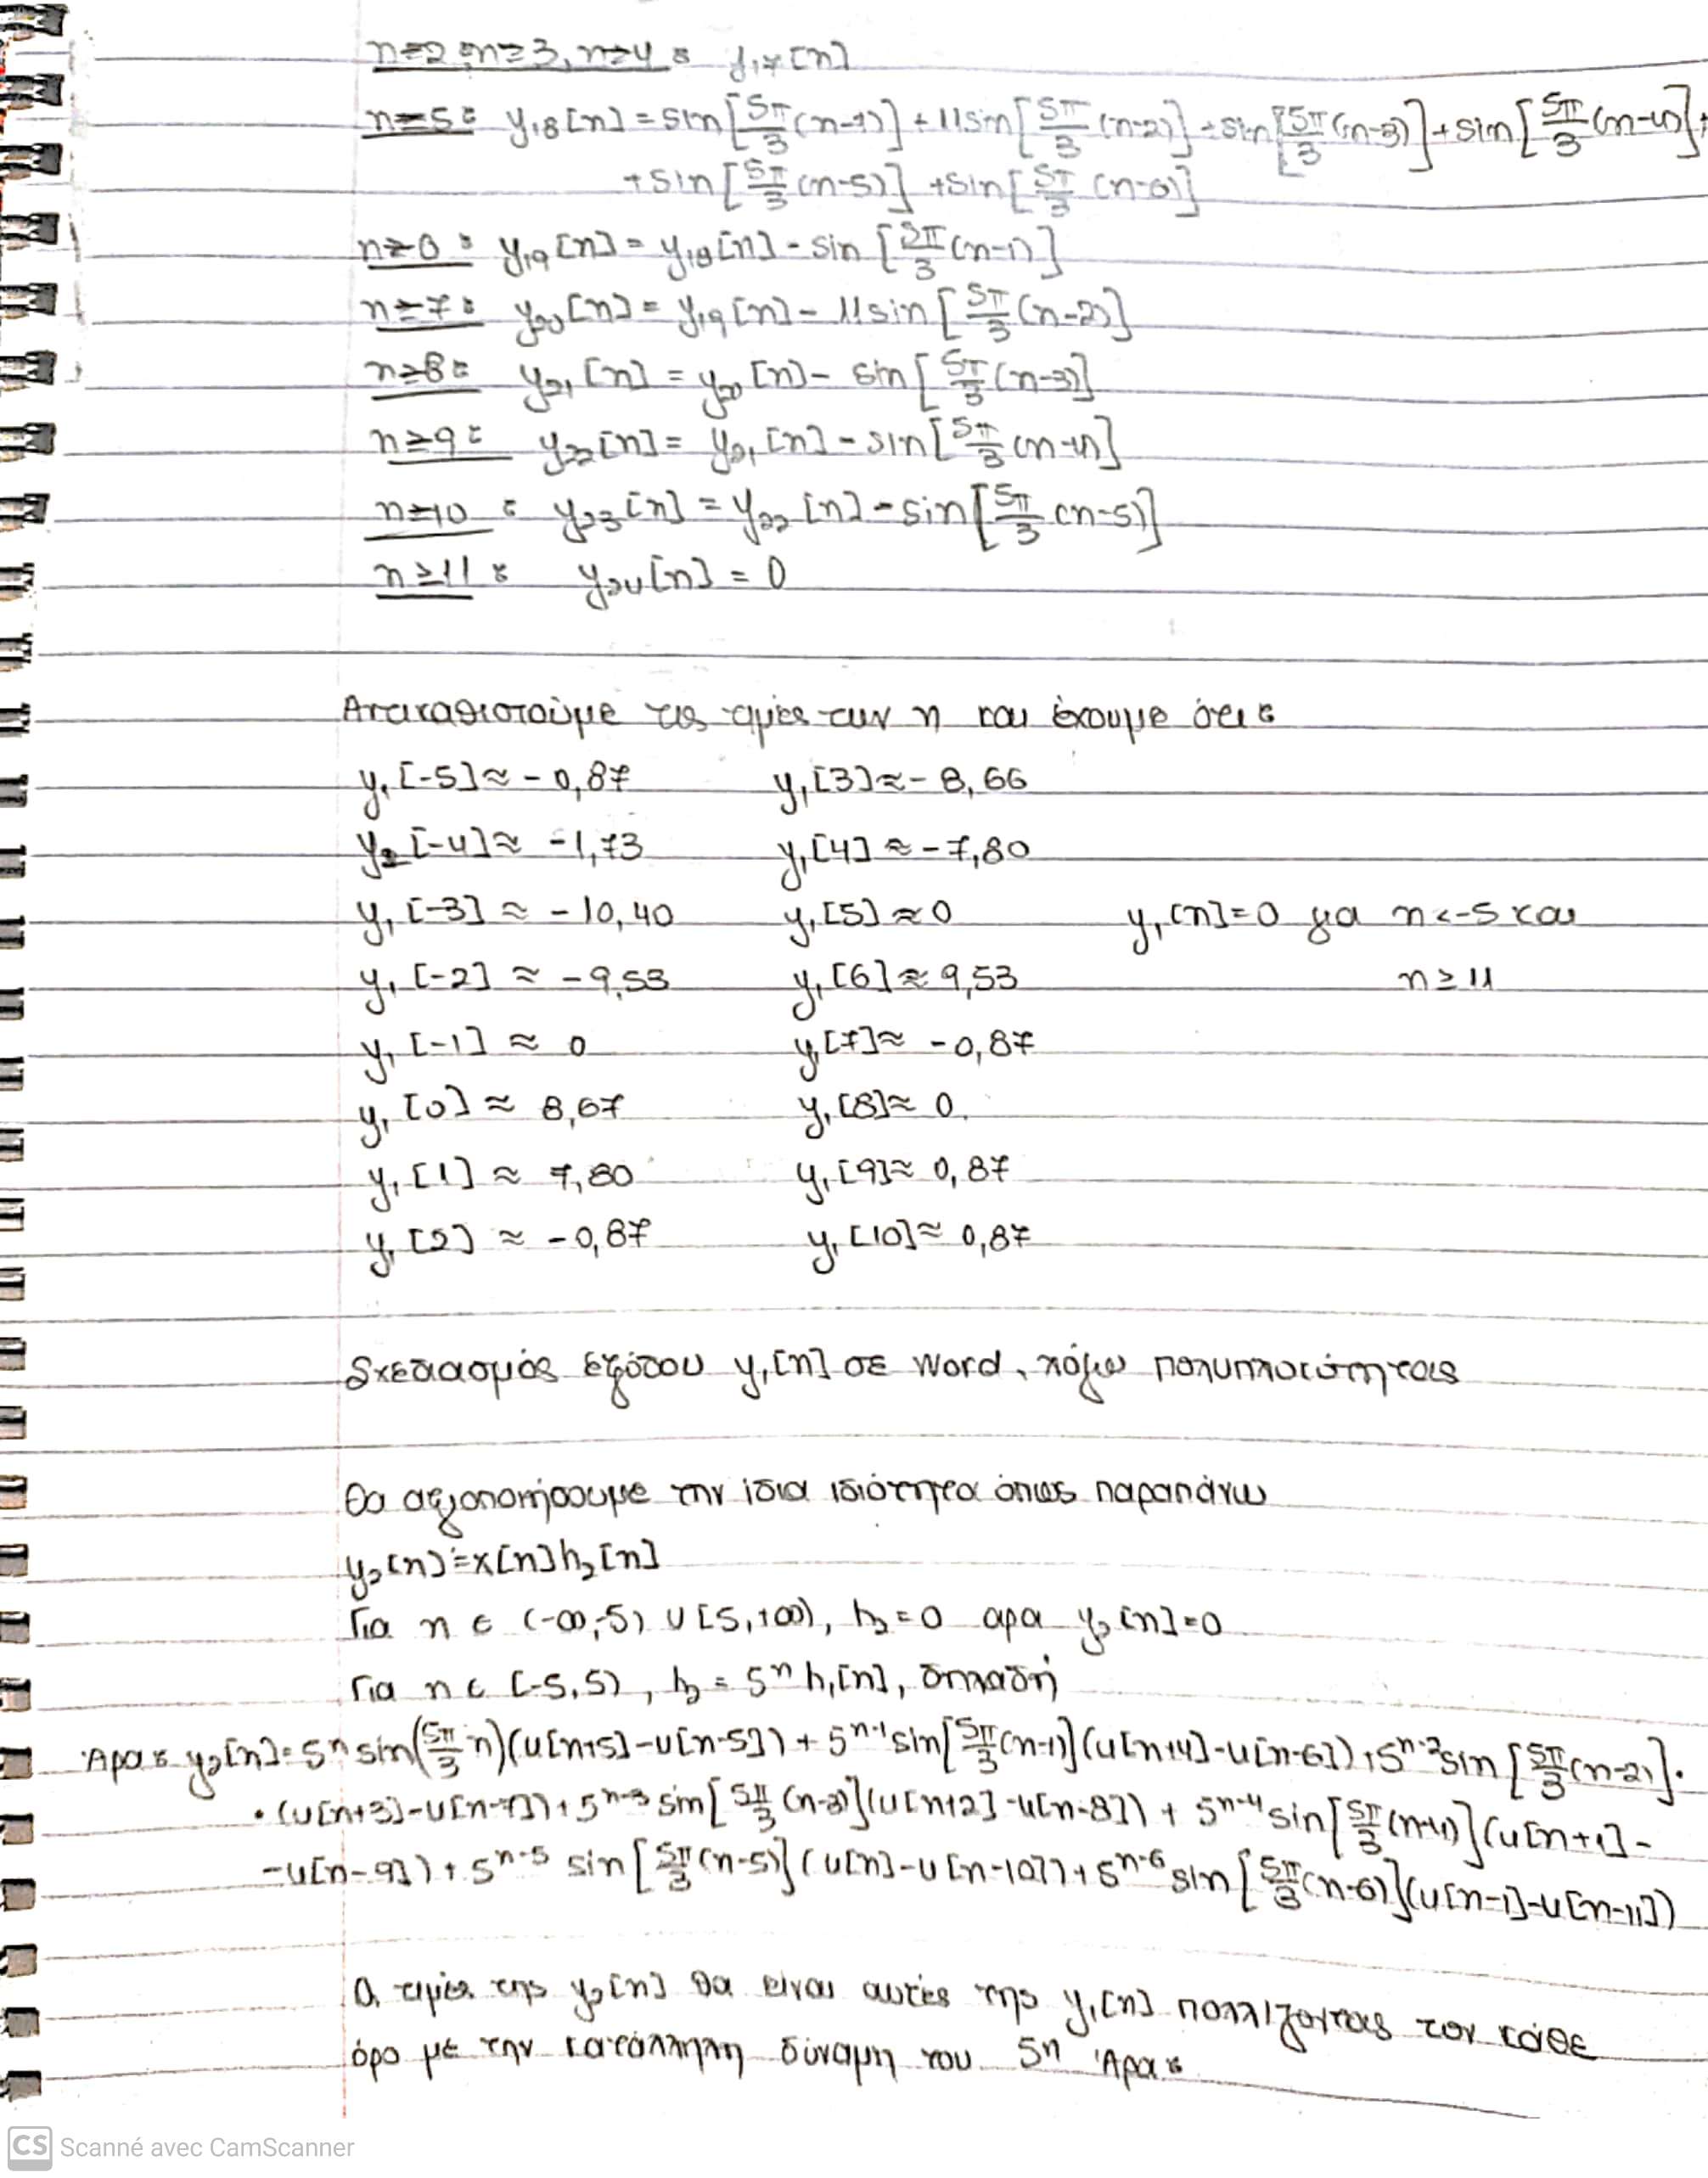 n=2, n=3, n=4 : y₁₇[n]
n=5 : y₁₈[n] = sin[5π/3 (n-1)] + 11sin[5π/3 (n-2)] + sin[5π/3 (n-3)] + sin[5π/3 (n-4)] +
+ sin[5π/3 (n-5)] + sin[5π/3 (n-6)]
n=6 : y₁₉[n] = y₁₈[n] - sin[5π/3 (n-1)]
n=7 : y₂₀[n] = y₁₉[n] - 11sin[5π/3 (n-2)]
n=8 : y₂₁[n] = y₂₀[n] - sin[5π/3 (n-3)]
n=9 : y₂₂[n] = y₂₁[n] - sin[5π/3 (n-4)]
n=10 : y₂₃[n] = y₂₂[n] - sin[5π/3 (n-5)]
n≥11 : y₂₄[n] = 0
Αντικαθιστούμε τις τιμές των n και έχουμε ότι :
y₁[-5] ≈ -0,87 y₁[3] ≈ -8,66
y₁[-4] ≈ -1,73 y₁[4] ≈ -7,80
y₁[-3] ≈ -10,40 y₁[5] ≈ 0 y₁[n]=0 για n<-5 και
y₁[-2] ≈ -9,53 y₁[6] ≈ 9,53 n≥11
y₁[-1] ≈ 0 y₁[7] ≈ -0,87
y₁[0] ≈ 8,67 y₁[8] ≈ 0
y₁[1] ≈ 7,80 y₁[9] ≈ 0,87
y₁[2] ≈ -0,87 y₁[10] ≈ 0,87
Σχεδιασμός εξόδου y₁[n] σε Word, λόγω πολυπλοκότητας
Θα αξιοποιήσουμε την ίδια ιδιότητα όπως παραπάνω
y₂[n] = x[n]h₂[n]
Για n ∈ (-∞,-5) ∪ [5,+∞), h₂=0 αρα y₂[n]=0
Για n ∈ [-5,5), h₂ = 5ⁿ h₁[n], δηλαδή
Άρα : y₂[n] = 5ⁿ sin(5π/3 n)(u[n+5]-u[n-5]) + 5ⁿ⁻¹ sin[5π/3 (n-1)](u[n+4]-u[n-6]) + 5ⁿ⁻² sin[5π/3 (n-2)] ·
· (u[n+3]-u[n-7]) + 5ⁿ⁻³ sin[5π/3 (n-3)](u[n+2]-u[n-8]) + 5ⁿ⁻⁴ sin[5π/3 (n-4)](u[n+1]-
-u[n-9]) + 5ⁿ⁻⁵ sin[5π/3 (n-5)](u[n]-u[n-10]) + 5ⁿ⁻⁶ sin[5π/3 (n-6)](u[n-1]-u[n-11])
Οι τιμές της y₂[n] θα είναι αυτές της y₁[n] πολλίζοντας τον κάθε
όρο με την κατάλληλη δύναμη του 5ⁿ Άρα :
CS Scanné avec CamScanner